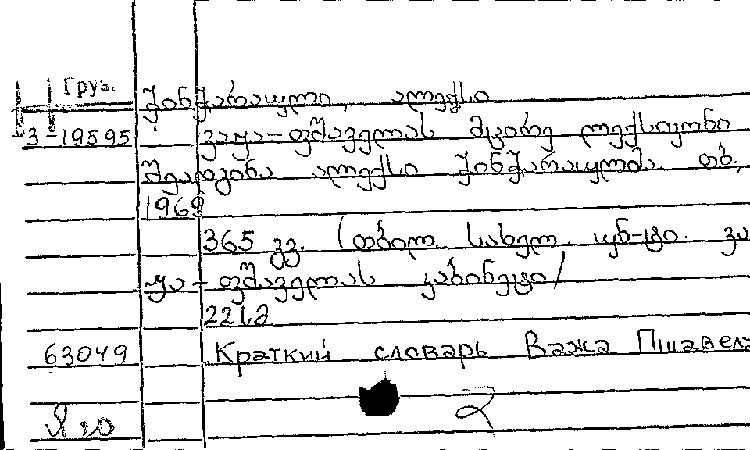 Груз.
ჭინჭარაული, ალექსი
3-19595 ვაჟა-ფშაველას მცირე ლექსიკონი
შეადგინა ალექსი ჭინჭარაულმა. თბ.,
1969
365 გვ. (თბილ. სახელ. უნ-ტი. ვა
ჟა-ფშაველას კაბინეტი/
221ა
63049 Краткий словарь Важа Пшавела